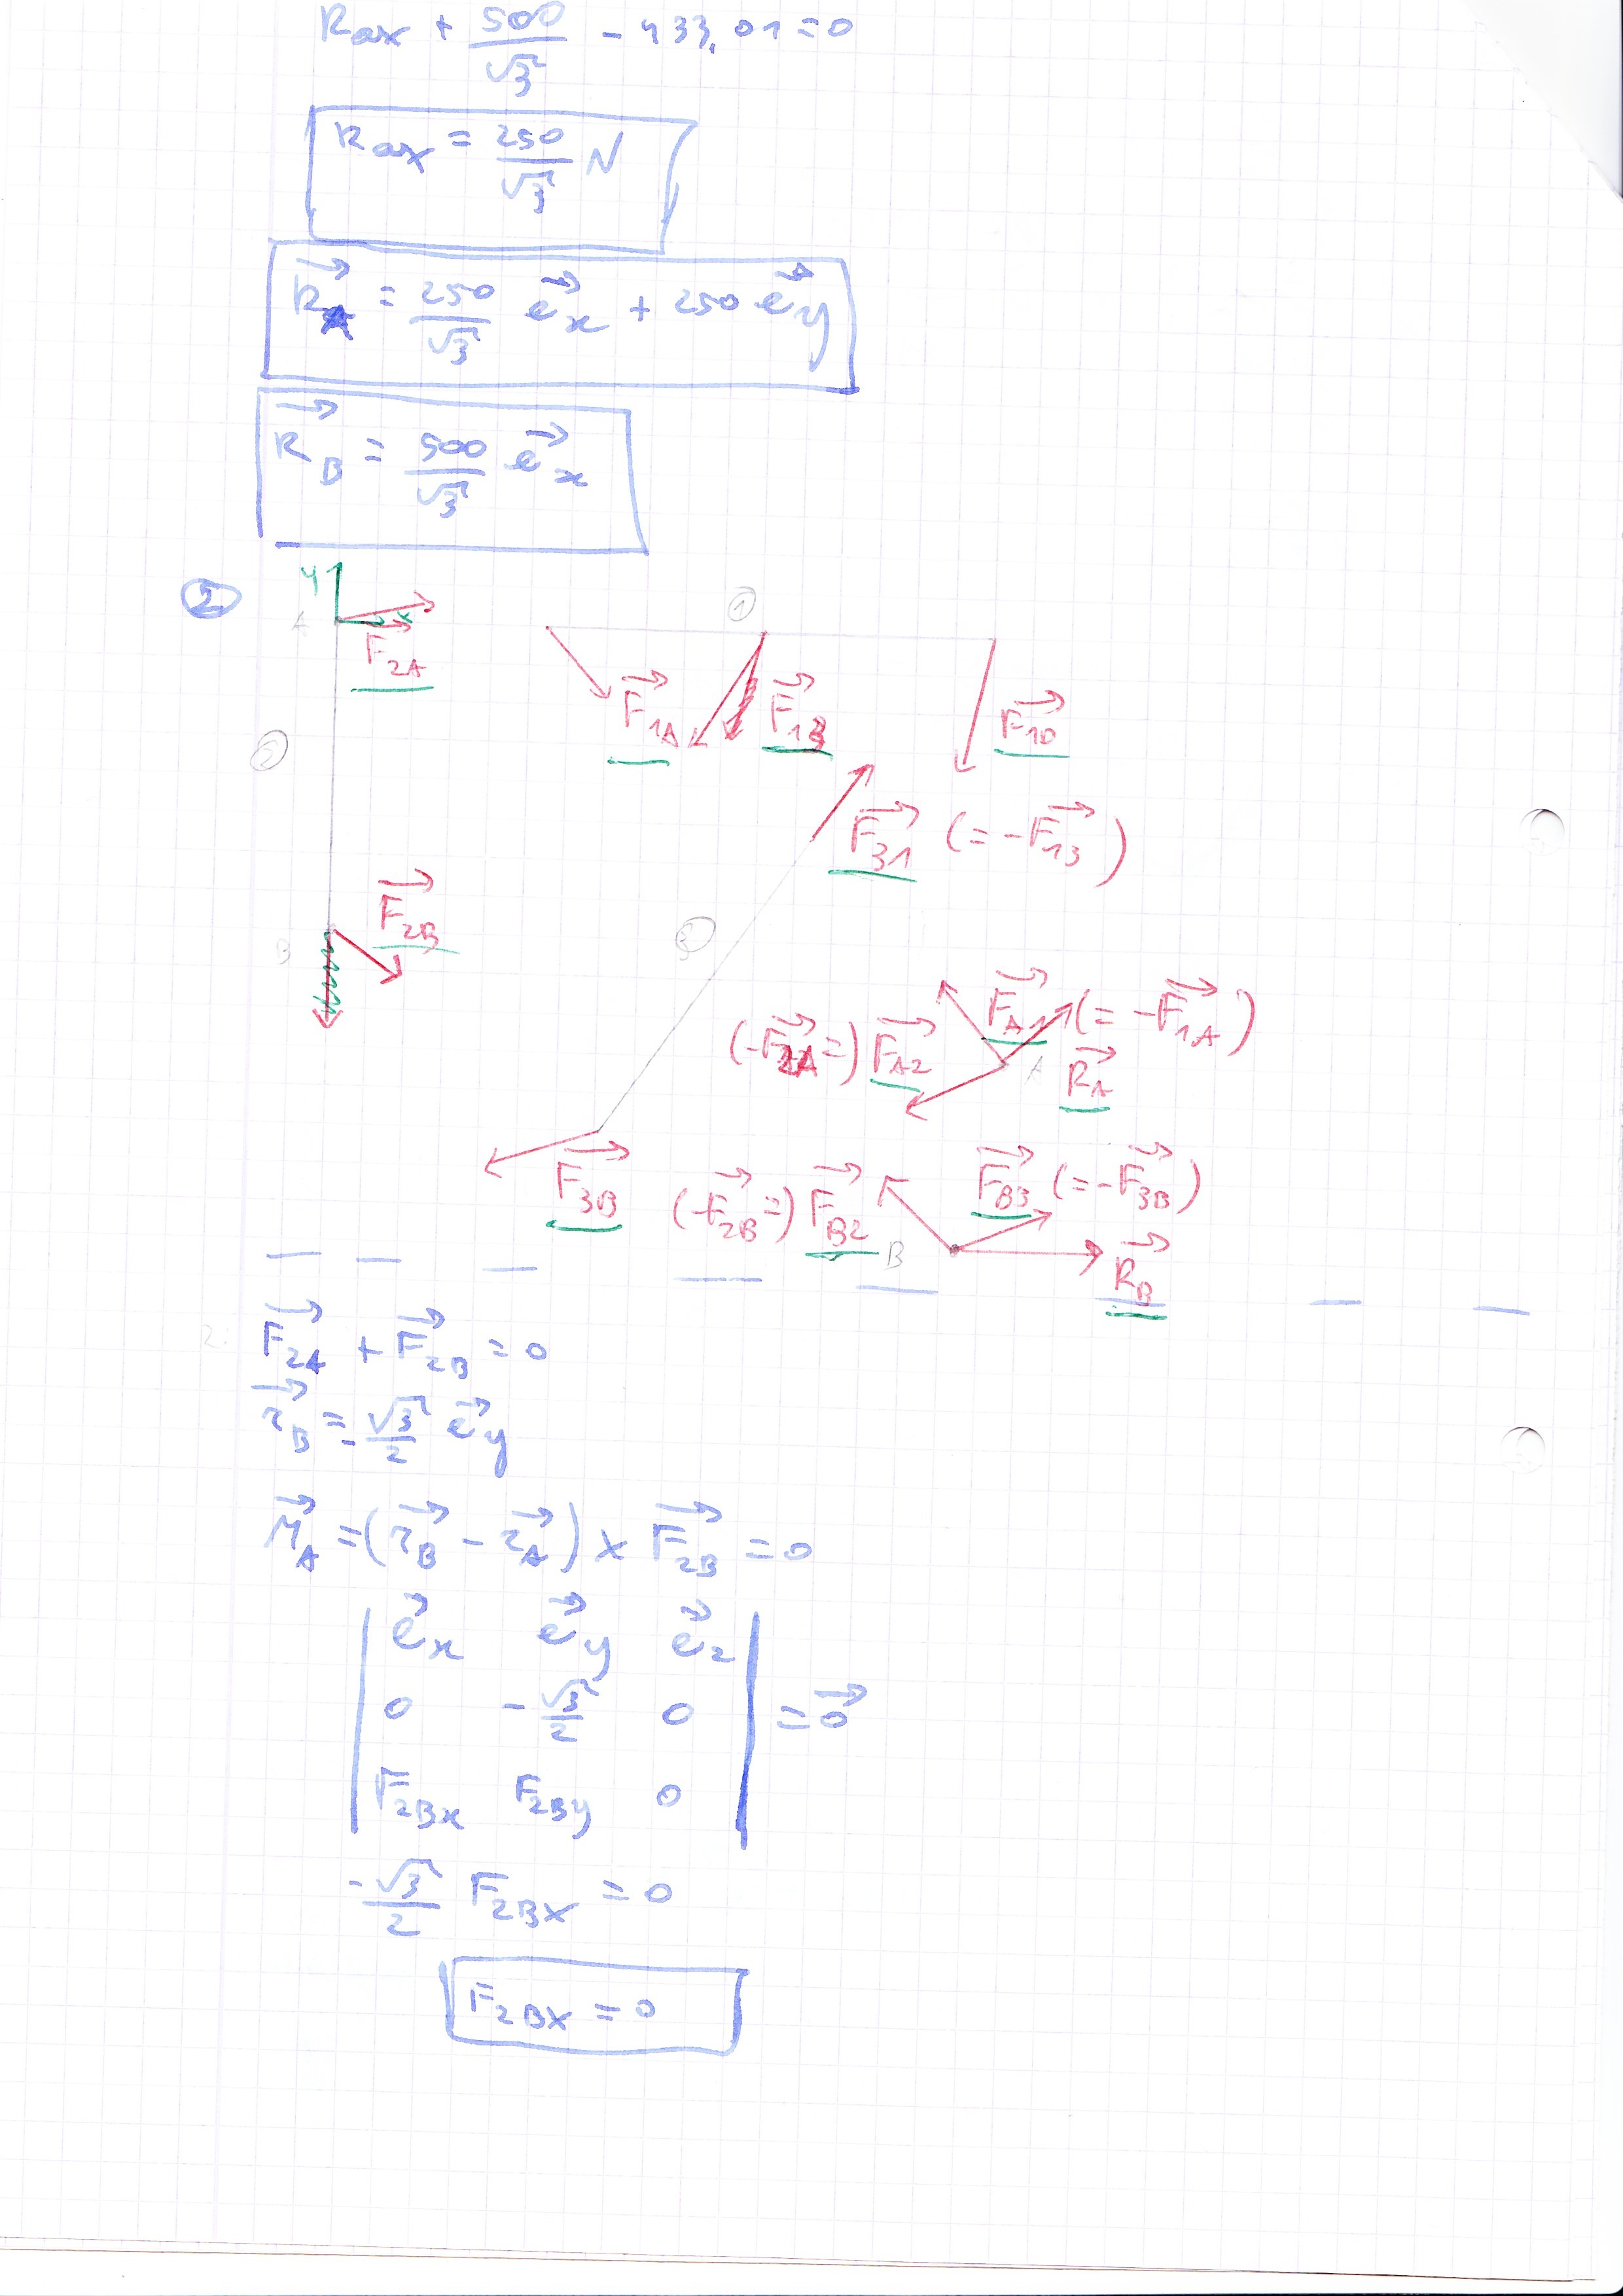 Rax + 500/√3 - 433,01 = 0
Rax = 250/√3 N
R⃗A = 250/√3 e⃗x + 250 e⃗y
R⃗B = 500/√3 e⃗x
②
y
x
A
F⃗2A
①
F⃗1A
F⃗13
F⃗10
②
F⃗31 (= -F⃗13)
B
F⃗2B
③
F⃗A1 (= -F⃗1A)
(-F⃗2A =) F⃗A2
A
R⃗A
F⃗3B
(-F⃗2B =) F⃗B2
F⃗B3 (= -F⃗3B)
B
R⃗B
2:
F⃗2A + F⃗2B = 0
r⃗B = -√3/2 e⃗y
M⃗A = (r⃗B - r⃗A) × F⃗2B = 0
| e⃗x e⃗y e⃗z |
| 0 -√3/2 0 | = 0⃗
| F2Bx F2By 0 |
-√3/2 F2Bx = 0
F2Bx = 0